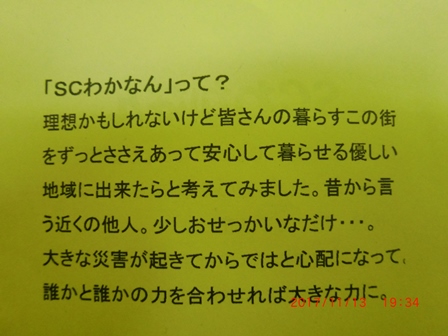 「SCわかなん」って？
理想かもしれないけど皆さんの暮らすこの街
をずっとささえあって安心して暮らせる優しい
地域に出来たらと考えてみました。昔から言
う近くの他人。少しおせっかいなだけ・・・。
大きな災害が起きてからではと心配になって、
誰かと誰かの力を合わせれば大きな力に。
2017/11/13 19:34